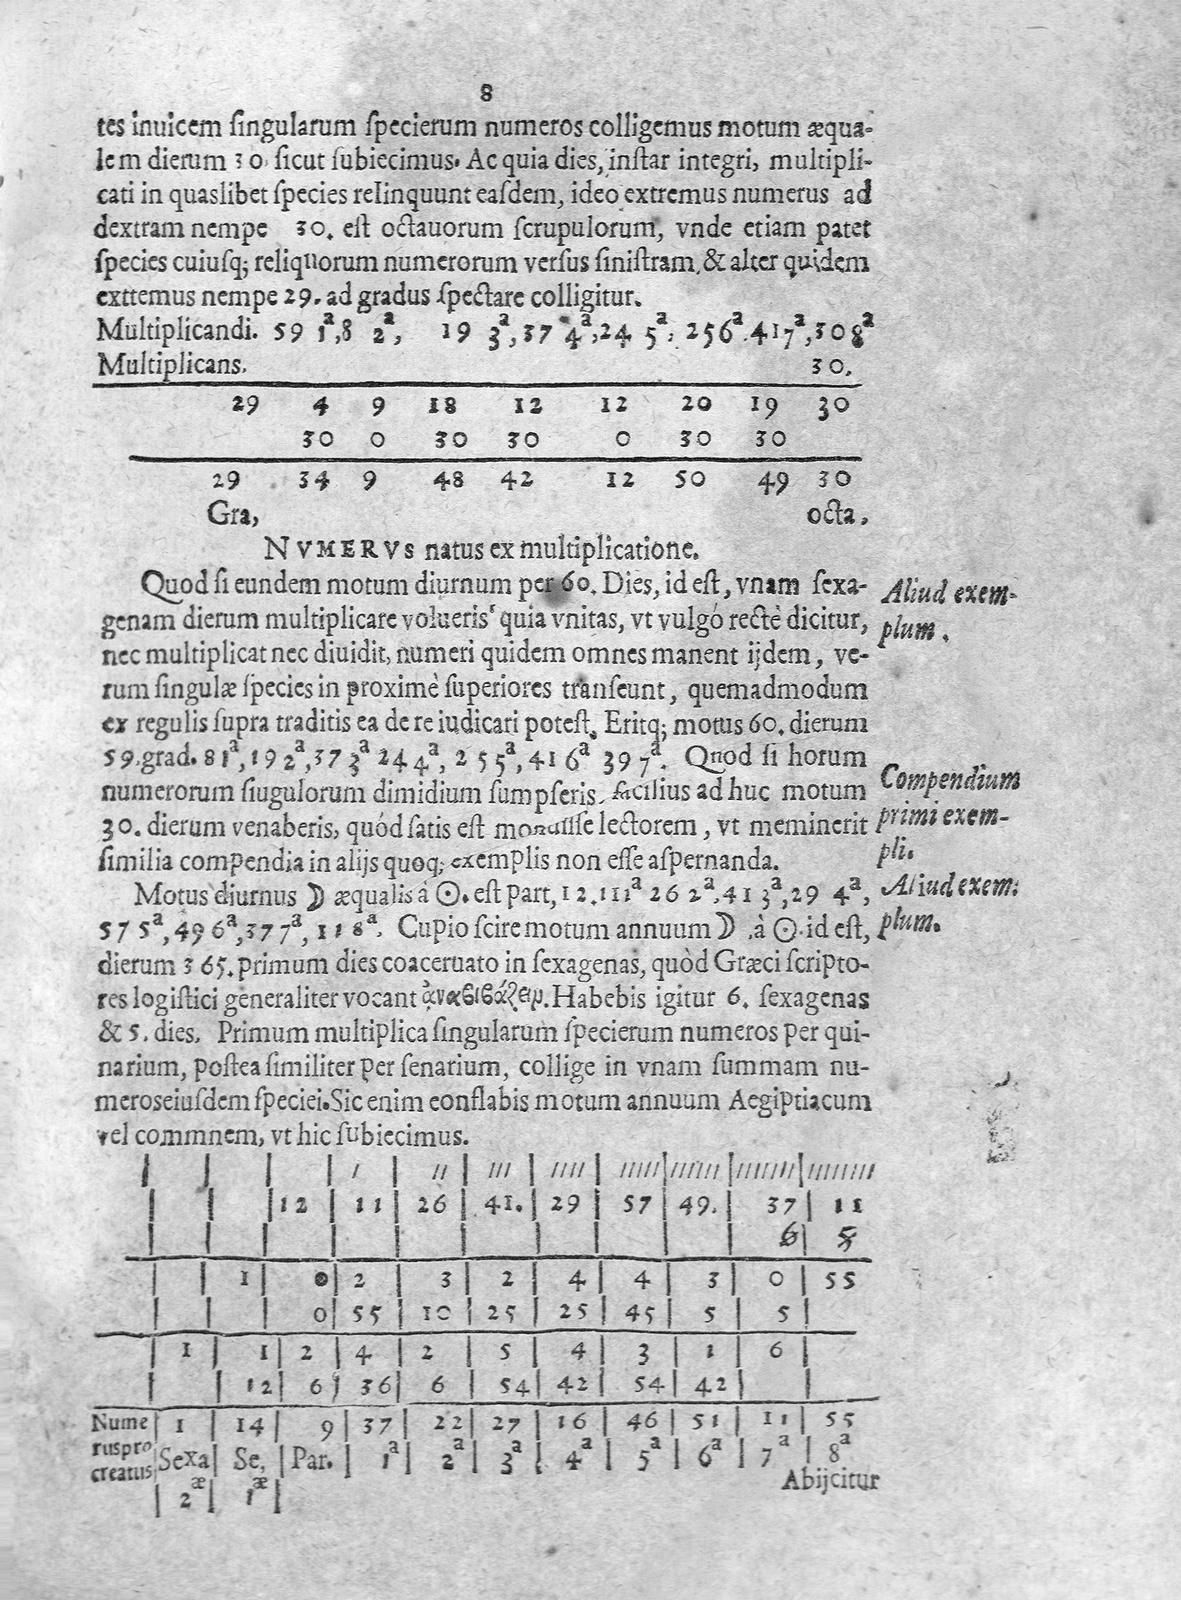 8
tes inuicem ſingularum ſpecierum numeros colligemus motum æqua-
lem dierum 30 ſicut ſubiecimus. Ac quia dies, inſtar integri, multipli-
cati in quaslibet ſpecies relinquunt eaſdem, ideo extremus numerus ad
dextram nempe 30. eſt octauorum ſcrupulorum, vnde etiam patet
ſpecies cuiuſq; reliquorum numerorum verſus ſiniſtram, & alter quidem
exttemus nempe 29. ad gradus ſpectare colligitur.
Multiplicandi. 59 1ª,8 2ª, 19 3ª,37 4ª,24 5ª, 256ª.417ª,308ª
Multiplicans. 30.
29 4 9 18 12 12 20 19 30
30 0 30 30 0 30 30
29 34 9 48 42 12 50 49 30
Gra, octa.
NVMERVS natus ex multiplicatione.
Quod ſi eundem motum diurnum per 60. Dies, id eſt, vnam ſexa-
genam dierum multiplicare volueris quia vnitas, vt vulgó rectè dicitur,
nec multiplicat nec diuidit, numeri quidem omnes manent ijdem, ve-
rum ſingulæ ſpecies in proximè ſuperiores tranſeunt, quemadmodum
ex regulis ſupra traditis ea de re iudicari poteſt. Eritq; motus 60. dierum
59.grad. 81ª,192ª,37 3ª 244ª, 255ª,41 6ª 39 7ª. Quod ſi horum
numerorum ſiugulorum dimidium ſumpſeris, facilius ad huc motum
30. dierum venaberis, quód ſatis eſt monuiſſe lectorem, vt meminerit
ſimilia compendia in alijs quoq; exemplis non eſſe aſpernanda.
Aliud exem-
plum.
Compendium
primi exem-
pli.
Motus diurnus ☽ æqualis á ☉. eſt part, 12.111ª 26 2ª.41 3ª,29 4ª,
57 5ª,49 6ª,37 7ª,11 8ª. Cupio ſcire motum annuum ☽ .à ☉.id eſt,
dierum 365. primum dies coaceruato in ſexagenas, quòd Græci ſcripto-
res logiſtici generaliter vocant ἀναβιβάζειν. Habebis igitur 6. ſexagenas
& 5. dies. Primum multiplica ſingularum ſpecierum numeros per qui-
narium, poſtea ſimiliter per ſenarium, collige in vnam ſummam nu-
meroseiuſdem ſpeciei. Sic enim conflabis motum annuum Aegiptiacum
vel commnem, vt hic ſubiecimus.
Aliud exem:
plum.
| | | / | // | /// | //// | ///// | ////// | /////// | ////////
| | |12 | 11 | 26 | 41. | 29 | 57 | 49. | 37 | 11
6 | 5
| | 1 | 0 | 2 | 3 | 2 | 4 | 4 | 3 | 0 | 55
| | | 0 | 55 | 10 | 25 | 25 | 45 | 5 | 5 |
| 1 | 1 | 2 | 4 | 2 | 5 | 4 | 3 | 1 | 6 |
| | 12 | 6 | 36 | 6 | 54 | 42 | 54 | 42 | |
Nume | 1 | 14 | 9 | 37 | 22 | 27 | 16 | 46 | 51 | 11 | 55
ruspro | Sexa | Se, | Par. | 1ª | 2ª | 3ª | 4ª | 5ª | 6ª | 7ª | 8ª
creatus Abijcitur
| 2æ | 1æ |